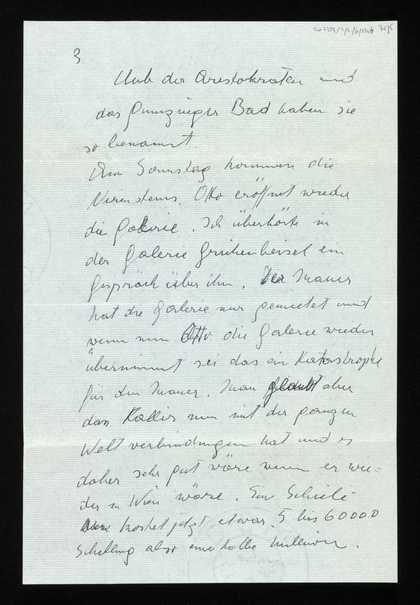 3
Club der Aristokraten und
das Bad haben sie
so benannt.
Am Sonntag kommen die
Otto eröffnet wieder
die Galerie. Ich überhörte in
der Galerie Griechenbeisel ein
Gespräch über ihn. Der Mauer
hat die Galerie nur gemietet und
wenn nun Otto die Galerie wieder
übernimmt sei das ein Katastrophe
für den Mauer. Man glaubt aber
dass Kallir nun mit der ganzen
Welt verbindungen hat und es
daher sehr gut wäre wenn er wie-
der in Wien wäre. Ein Schiele
kostet jetzt etwas 5 bis 60000
Schilling also eine halbe Million.